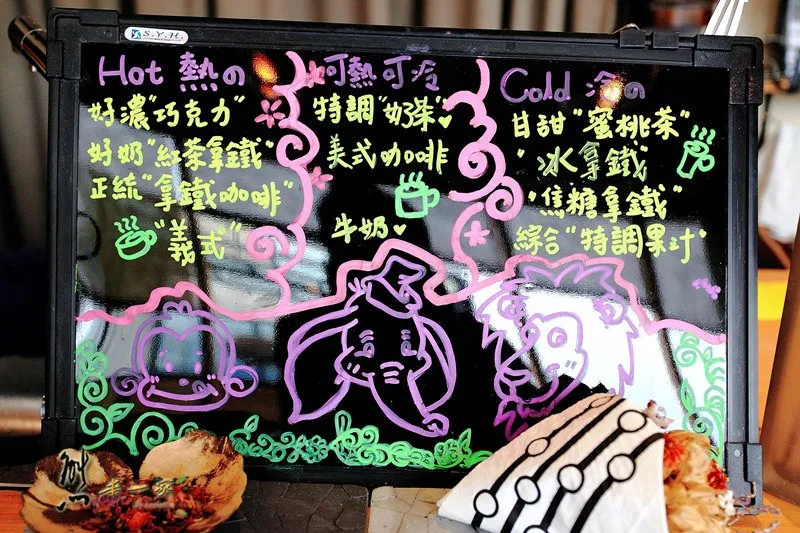 S.Y.H.
Hot 熱の
好濃"巧克力"
好奶"紅茶拿鐵"
正統"拿鐵咖啡"
"義式"
可熱可冷
特調"奶茶"♥
美式咖啡
牛奶♥
Cold 冷の
甘甜"蜜桃茶"
"冰拿鐵"
"焦糖拿鐵"
綜合"特調果汁"